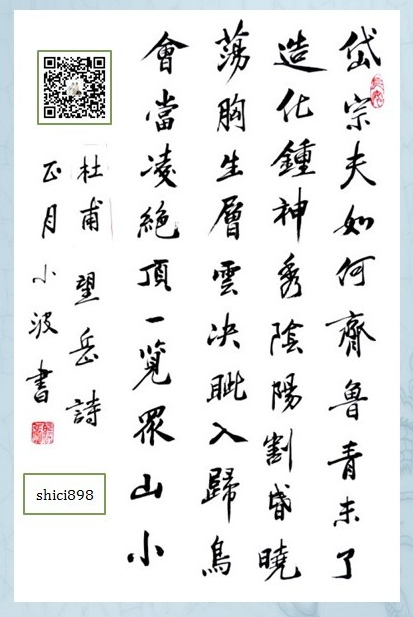 岱宗夫如何齊魯青未了
造化鍾神秀陰陽割昏曉
荡胸生層雲决眦入歸鳥
會當凌絕頂一览眾山小
杜甫望岳詩
正月小波書
shici898